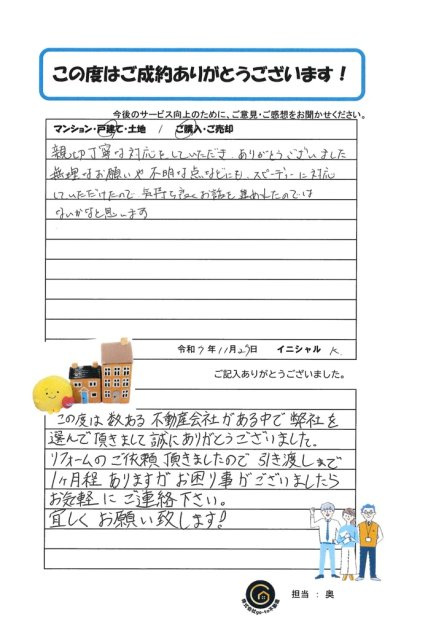 この度はご成約ありがとうございます！
今後のサービス向上のために、ご意見・ご感想をお聞かせください。
マンション・戸建て・土地 / ご購入・ご売却
親切丁寧な対応をしていただき、ありがとうございました
無理なお願いや不明な点などにも、スピーディーに対応
していただけたので、気持ち良くお話を進めれたのでは
ないかなと思います
令和7年11月29日 イニシャル K.
ご記入ありがとうございました。
この度は数ある不動産会社がある中で弊社を
選んで頂きまして誠にありがとうございました。
リフォームのご依頼頂きましたので引き渡しまで
1ヶ月程ありますがお困り事がございましたら
お気軽にご連絡下さい。
宜しくお願い致します!
担当 : 奥